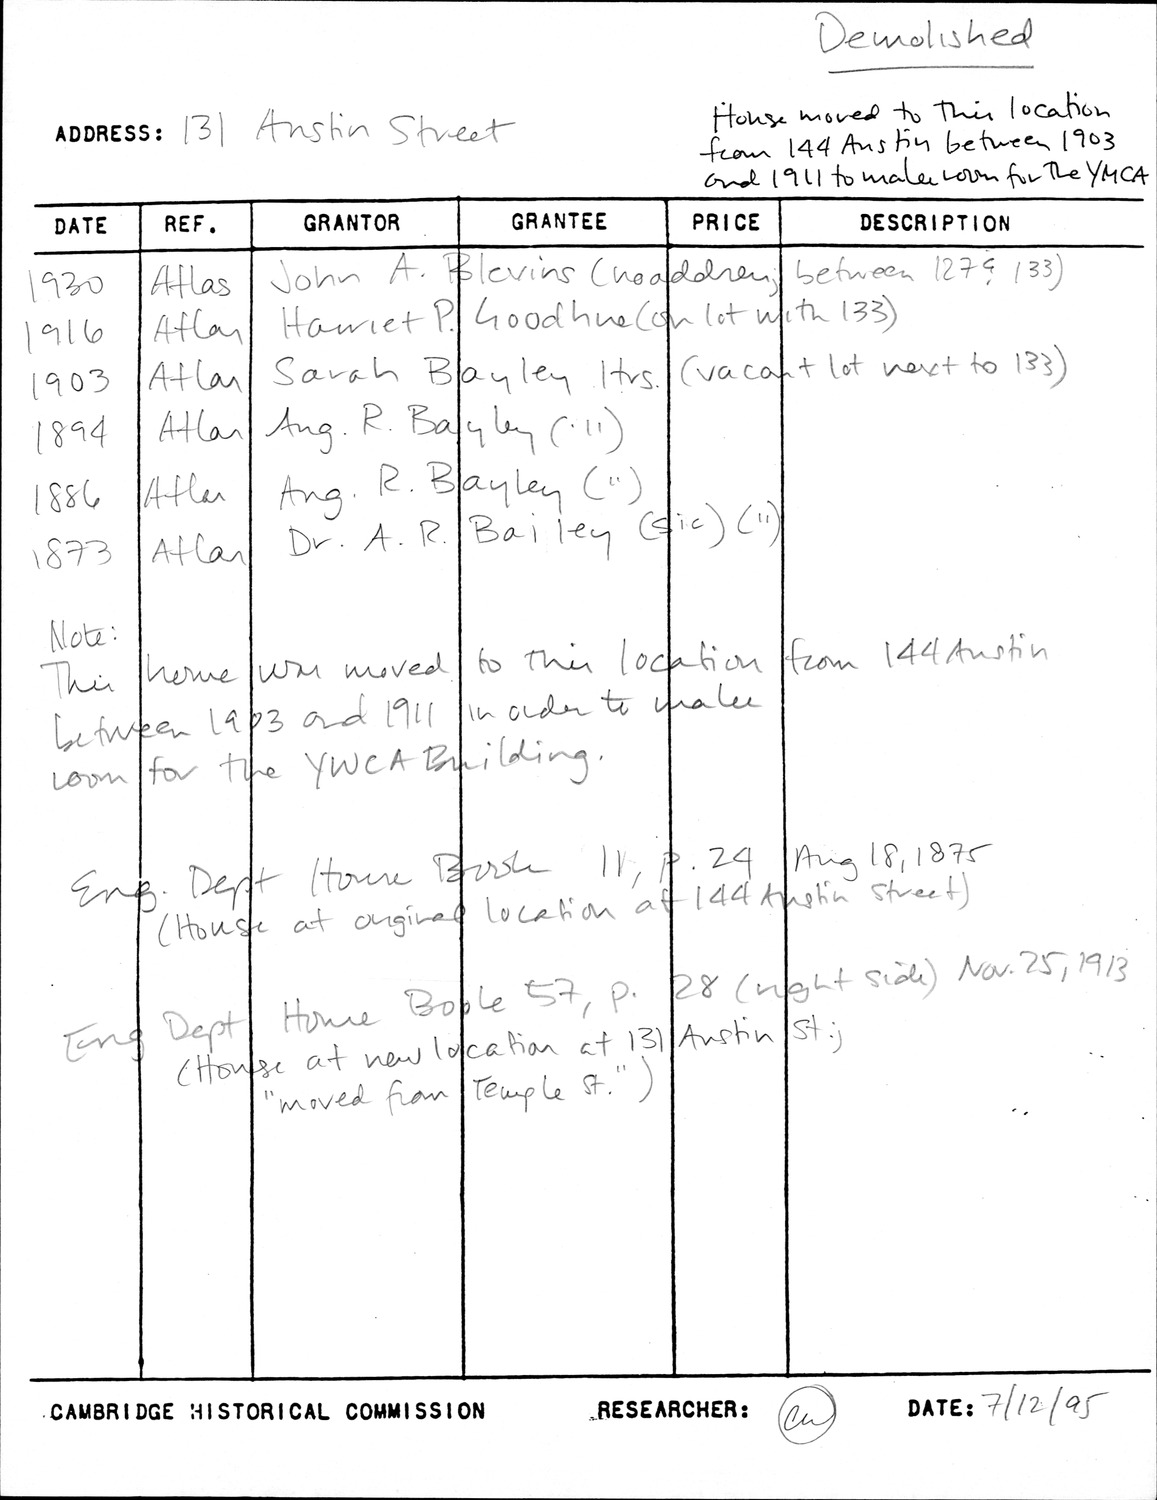 Demolished
ADDRESS: 131 Austin Street
House moved to this location
from 144 Austin between 1903
and 1911 to make room for the YMCA
DATE REF. GRANTOR GRANTEE PRICE DESCRIPTION
1930 Atlas John A. Blevins (no address, between 127 & 133)
1916 Atlas Harriet P. Goodhue (on lot with 133)
1903 Atlas Sarah Bayley Hrs. (vacant lot next to 133)
1894 Atlas Aug. R. Bayley (")
1886 Atlas Aug. R. Bayley (")
1873 Atlas Dr. A. R. Bailey (sic) (")
Note:
This house was moved to this location from 144 Austin
between 1903 and 1911 in order to make
room for the YWCA Building.
Eng. Dept House Book 11, p. 24 Aug 18, 1875
(House at original location at 144 Austin Street)
Eng Dept House Book 57, p. 28 (right side) Nov. 25, 1913
(House at new location at 131 Austin St.;
"moved from Temple St.")
CAMBRIDGE HISTORICAL COMMISSION RESEARCHER: DATE: 7/12/95